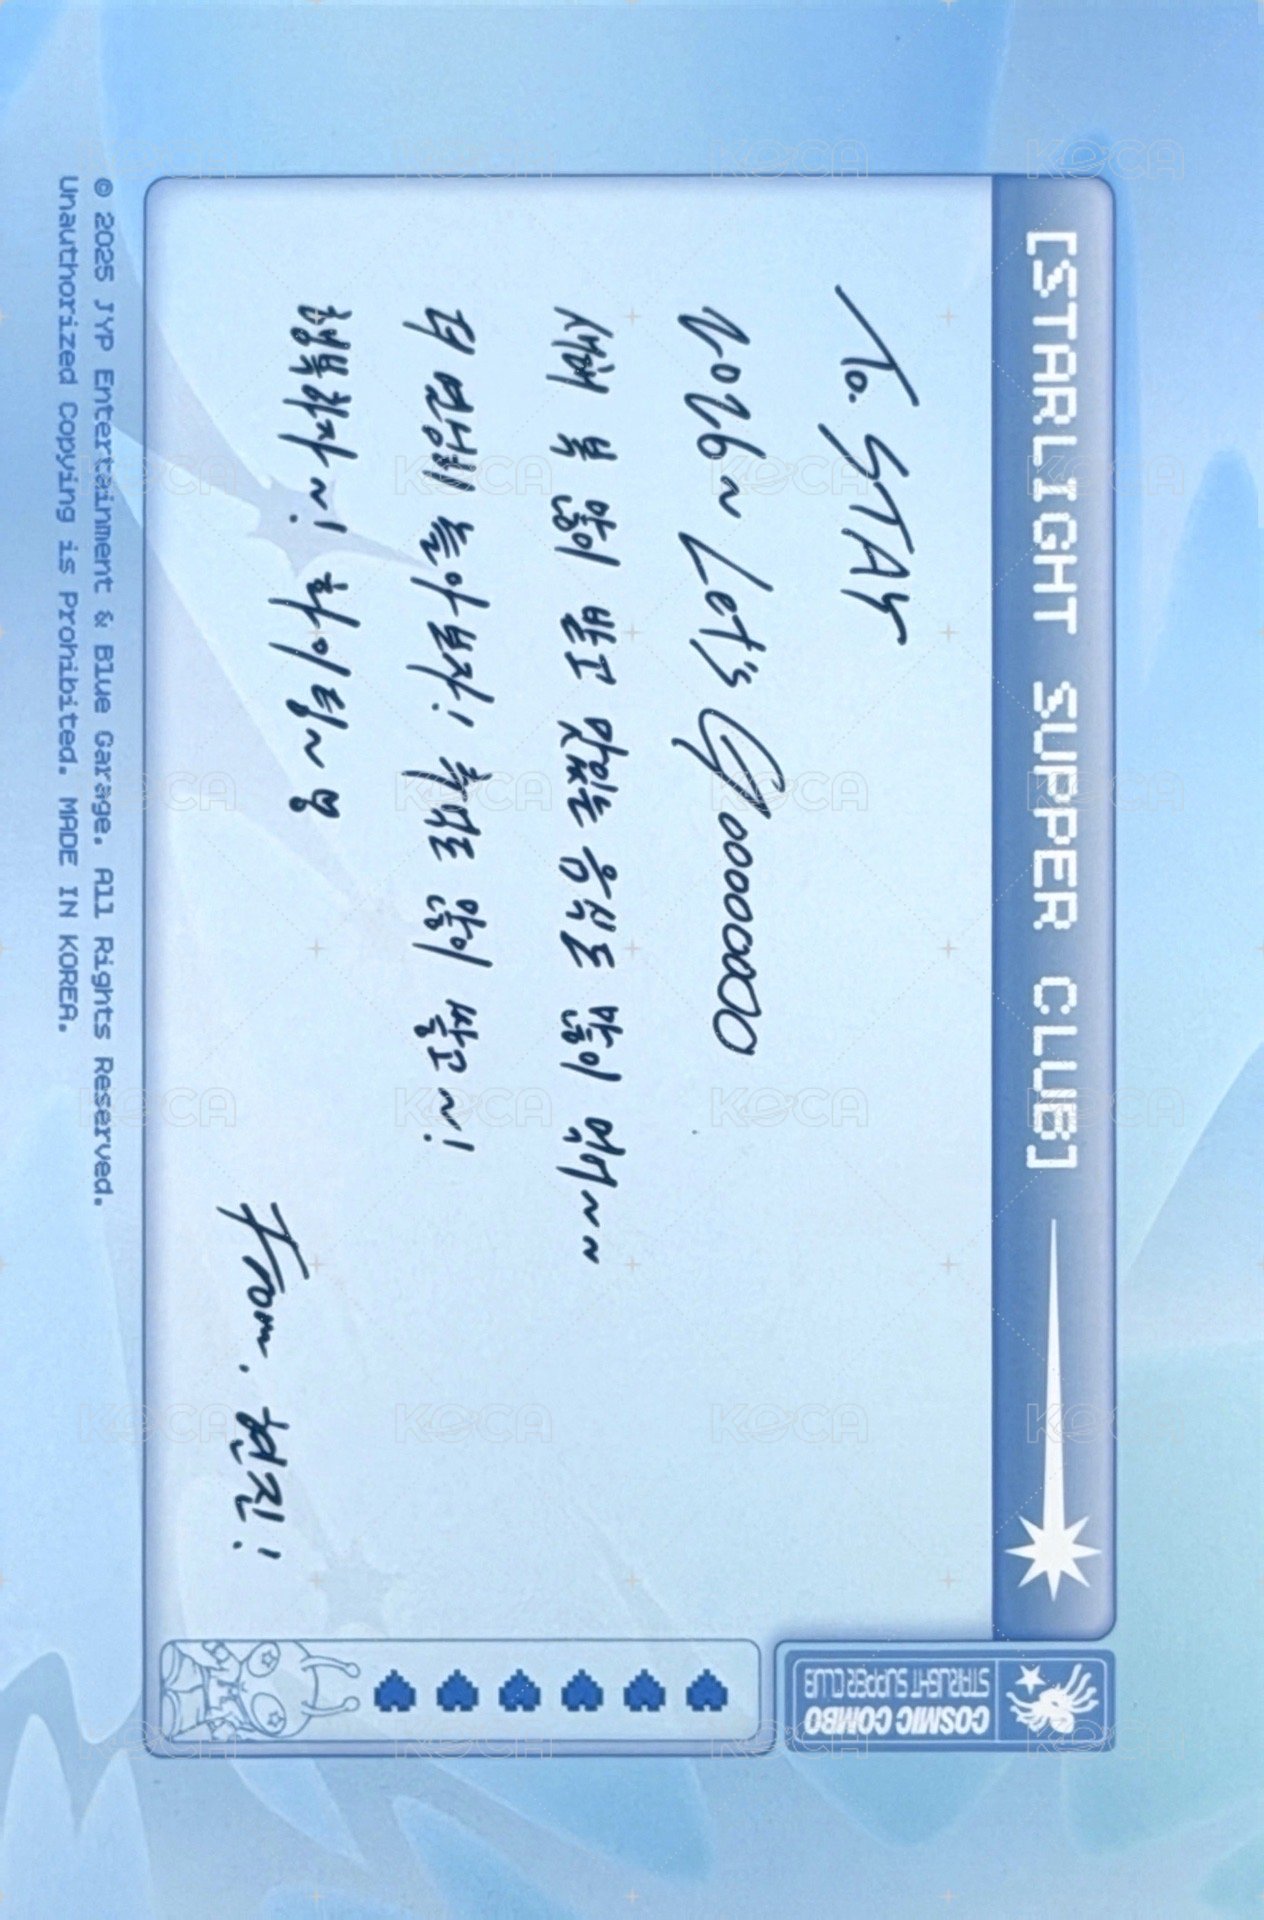 [STARLIGHT SUPPER CLUB]
To. STAY
2026~ Let's Goooooooo
새해 복 많이 받고 맛있는 음식도 많이 먹구~~
더 열심히 놀아보자! 축복도 많이 받고~!
행복하자~! 화이팅~
From. 현진!
COSMIC COMBO
STARLIGHT SUPPER CLUB
© 2025 JYP Entertainment & Blue Garage. All Rights Reserved.
Unauthorized Copying is Prohibited. MADE IN KOREA.
KOCA